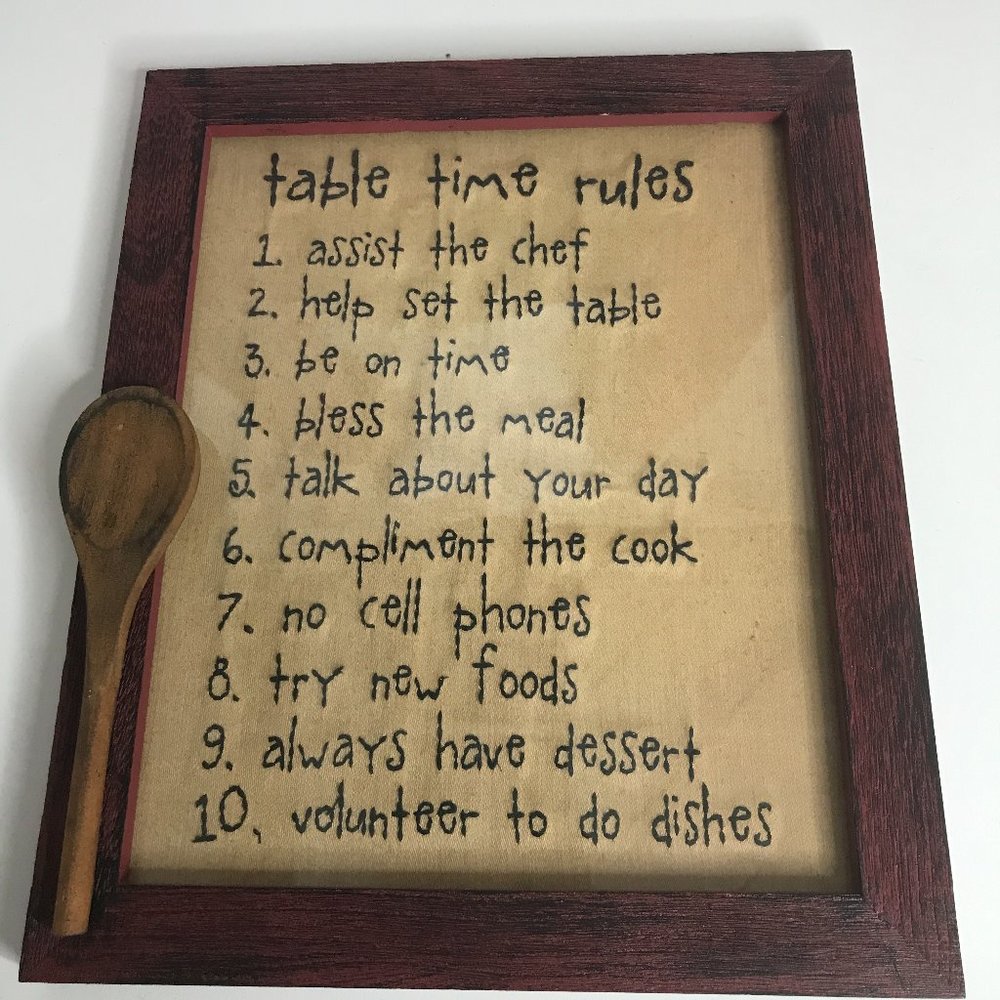 table time rules
1. assist the chef
2. help set the table
3. be on time
4. bless the meal
5. talk about your day
6. compliment the cook
7. no cell phones
8. try new foods
9. always have dessert
10. volunteer to do dishes